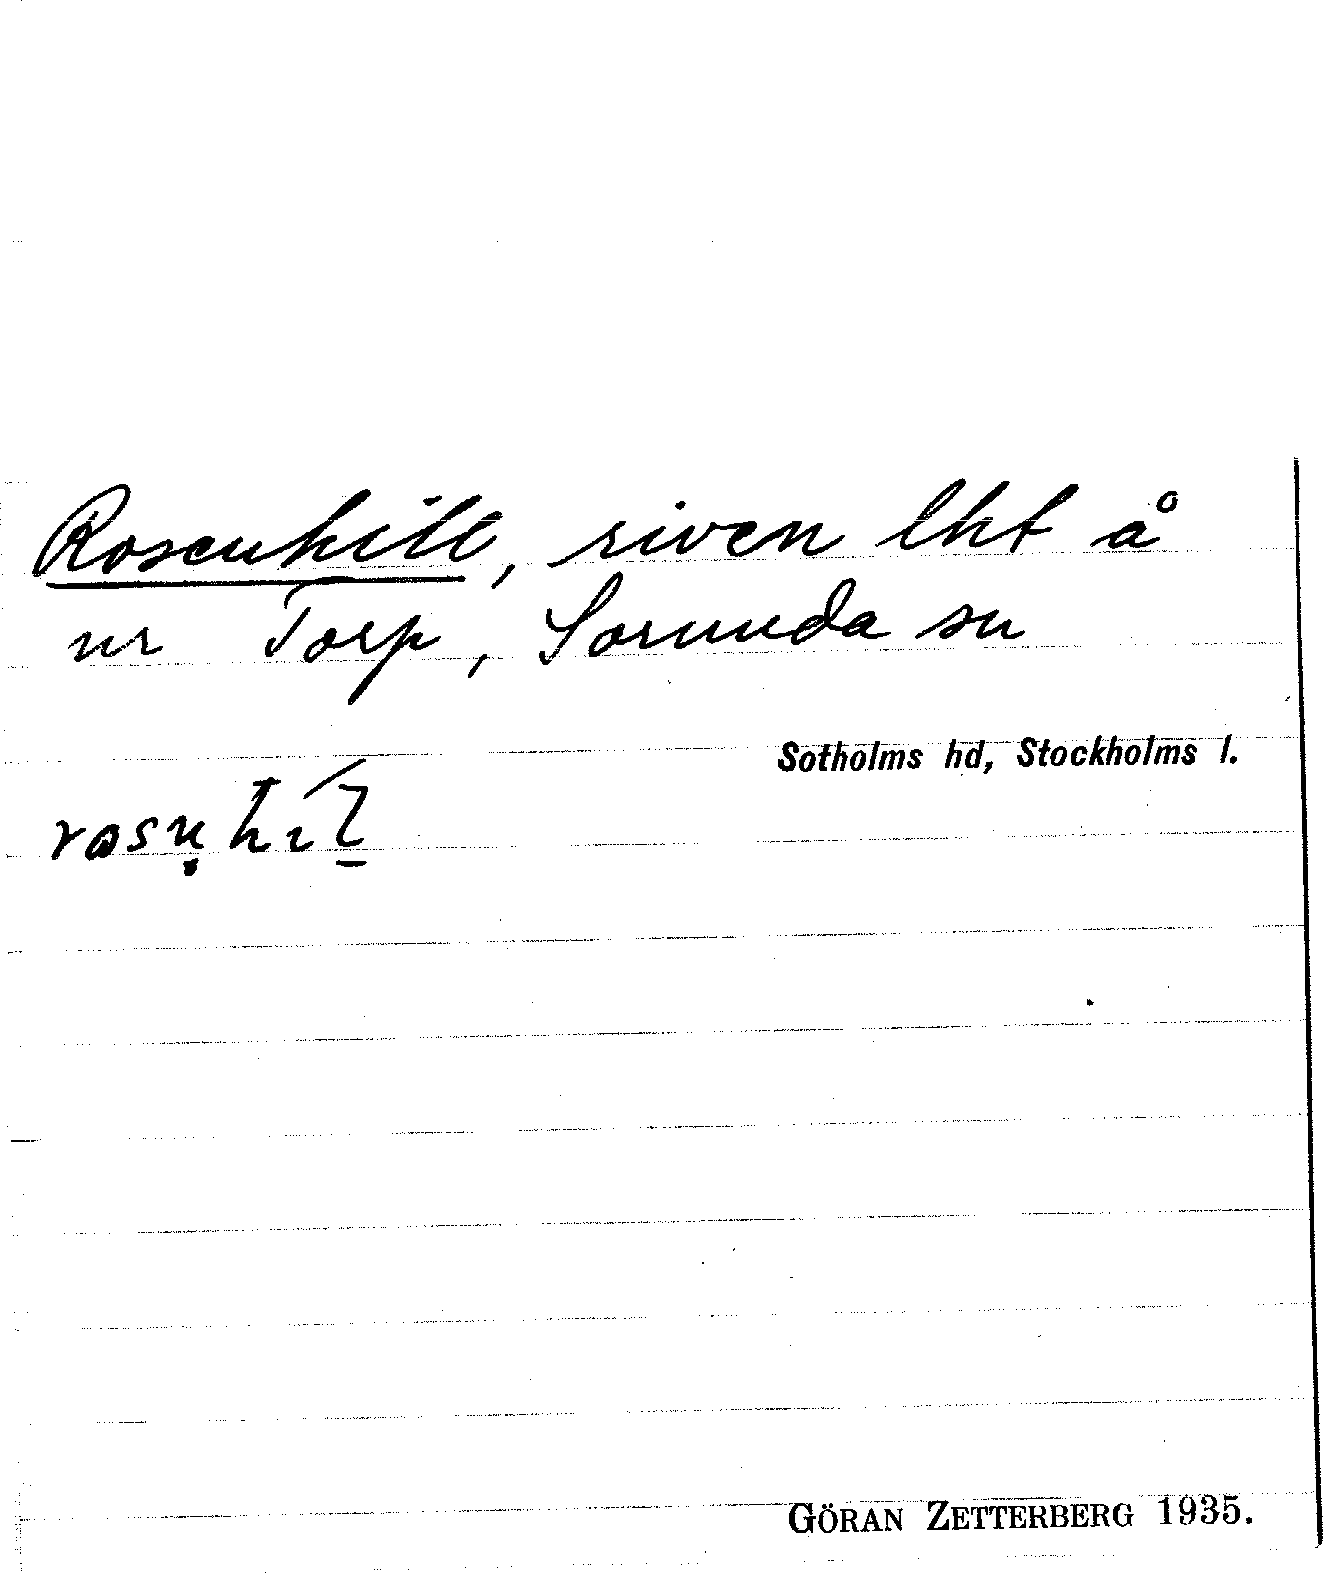 Rosenhill, riven lht å
ur Torp, Sorunda sn
Sotholms hd, Stockholms l.
GÖRAN ZETTERBERG 1935.